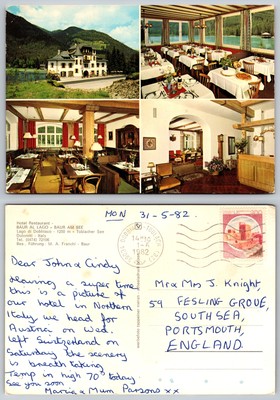 Hotel Restaurant
BAUR AL LAGO - BAUR AM SEE
Lago di Dobbiaco - 1250 m - Toblacher See
Dolomiti - Italy
Tel. (0474) 72106
Bes. Führung - M. A. Franchi - Baur
MON 31-5-82.
1982
Dear John & Cindy
Having a super time
this is a picture of
our hotel in Northern
Italy we head for
Austria on Wed.
left Switzerland on
Saturday the scenery
is breath taking
Temp in high 70° today
See you soon
Marcia & Mum Parsons xx
Mr & Mrs J. Knight,
59 FESLING GROVE,
SOUTHSEA,
PORTSMOUTH,
ENGLAND.